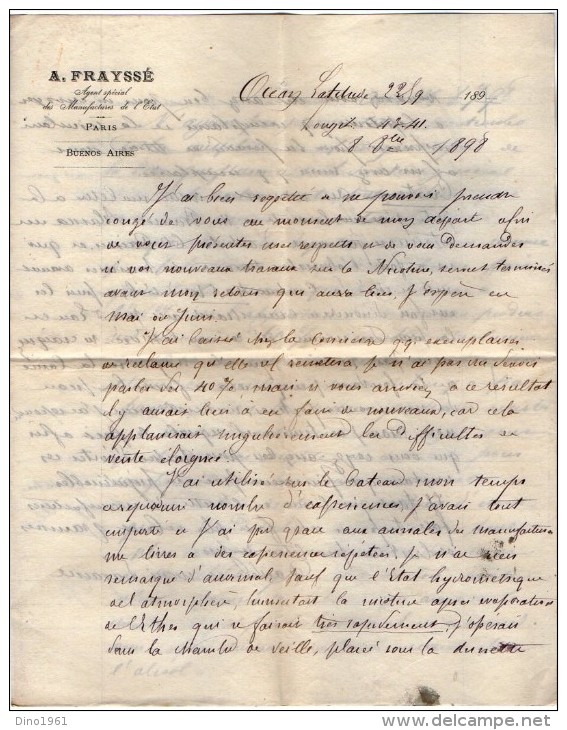 A. FRAYSSÉ
Agent spécial
des Manufactures de l'Etat
PARIS
BUENOS AIRES
Océan Latitude 22°/9 189
Longit. 43.41.
8 8bre 1898
J'ai bien regretté de ne pouvoir prendre
congé de vous au moment de mon départ afin
de vous présenter mes respects et de vous demander
si vos nouveaux travaux sur la Nicotine, seront terminés
avant mon retour qui aura lieu, j'espère en
Mai ou Juin.
J'ai laissé chez la Concierge qq. exemplaires
de réclame qu'elle vs remettra, je n'ai pas cru devoir
parler des 40% mais si vous arriviez à ce résultat
il y aurait lieu à en faire de nouveaux, car cela
applanirait singulièrement les difficultés de
vente éloignée.
J'ai utilisé sur le bateau mon temps
à nombre d'expériences, j'avais tout
emporté et j'ai pu grâce aux annales des manufactures
me livrer à des expériences répétées, je n'ai rien
remarqué d'anormal, sauf que l'état hydrométrique
de l'atmosphère, humectait la nicotine après evaporation
de l'Ether qui se faisait très rapidement, j'opérais
dans la Chambre de veille, placé sous la dunette
l'alcool
Dino1961
delcampe.net